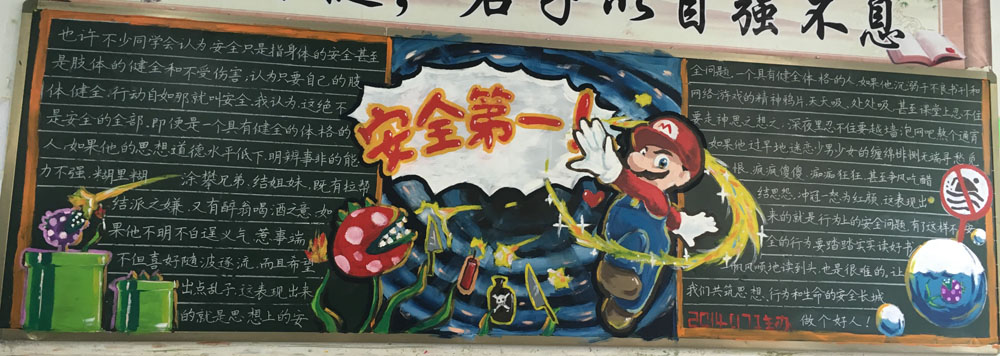 君子以自强不息
也许不少同学会认为安全只是指身体的安全甚至
是肢体的健全和不受伤害,认为只要自己的肢
体健全,行动自如那就叫安全,我认为,这绝不
是安全的全部,即使是一个具有健全的体格的
人,如果他的思想道德水平低下,明辨事非的能
力不强,糊里糊
涂攀兄弟,结姐妹,既有拉帮
结派之嫌,又有醉翁喝酒之意,如
果他不明不白逞义气,惹事端,
不但喜好随波逐流,而且希望
出点乱子,这表现出来
的就是思想上的安
安全第一!
M
全问题,一个具有健全体格的人,如果他沉弱于不良书刊和
网络游戏的精神鸦片,天天吸,处处吸,甚至课堂上忍不住
要走神思之想之,深夜里忍不住要越墙泡网吧熬个通宵
如果他过早地迷恋少男少女的缠绵悱恻,无端寻愁觅
恨,疯疯傻傻,痴痴狂狂,甚至争风吃醋
结思想,冲冠一怒为红颜,这表现出
来的就是行为上的安全问题,有了这样不安
全的行为要踏踏实实读好书
一帆风顺地读到头,也是很难的,让
我们共筑思想、行为和生命的安全长城
做个好人!